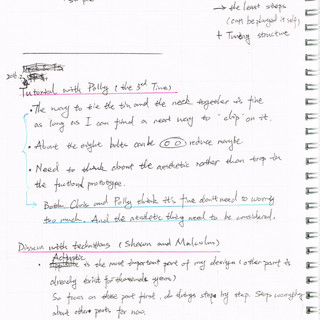 → the least steps
(can be played it self)
+ Tuning structure
Tutorial with Polly (the 3rd Time)
• The way to tie the tin and the neck together is fine
as long as I can find a neat way to "clip" on it.
• About the eight bolts can be reduce maybe
• Need to think about the aesthetic rather than trap in
the functional prototype.
Both Chris and Polly think it's fine don't need to worry
too much. And the aesthetic thing need to be considered.
Discuss with technitions (Shawn and Malcolm)
• Acoustic
is the most important part of my design (other part is
already exist for thousands years)
So focus on these part first, do things step by step. Stop worrying
about other parts for now.